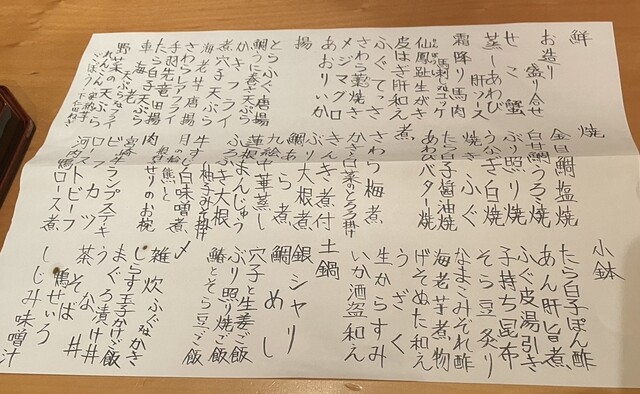 鮮
お造り盛り合せ
せこ蟹
蒸しあわび肝ソース
霜降り馬肉
馬刺 ユッケ
仙鳳趾生がき
皮はぎ肝和え
ふぐてっさ
さわら藁焼き
メジマグロ
あおりいか
揚
とらふぐ唐揚
鯛うに巻き天ぷら
かきフライ
煮穴子天ぷら
海老芋唐揚
さわらレアフライ
手羽先竜田揚
たら白子天ぷら
車海老
天ぷら
フライ
野菜の天ぷら
れんこん
ごぼう
下仁田ねぎ
焼
金目鯛塩焼
白甘鯛うろこ焼
ぶり照り焼
うなぎ白焼
焼きふぐ
たら白子醤油焼
あわびバター焼
煮
さわら梅煮
かきと白菜のとろろ掛
きんき煮付
ぶり大根煮
鯛あら煮
九絵中華蒸し
蓮根まんじゅう
ふろふき大根
牛すじ柚子みそ掛
月の輪熊と根芹白味噌煮
肉
根芹せりのお椀
宮崎牛ランプステーキ
ビーフカツ
ローストビーフ
河内鴨ロース煮
小鉢
たら白子ぽん酢
あん肝旨煮
ふぐ皮湯引き
子持ち昆布
そら豆炙り
なまこみぞれ酢
海老芋煮物
げそぬた和え
うざく
生からすみ
いか酒盗和え
土鍋
銀シャリ
鯛めし
穴子と生姜ご飯
ぶり照り焼ご飯
鰆とそら豆ご飯
〆
雑炊 ふぐ なか かき
しらす玉子かけご飯
まぐろ漬け丼
うな丼
茶そば
鴨せいろ
しじみ味噌汁